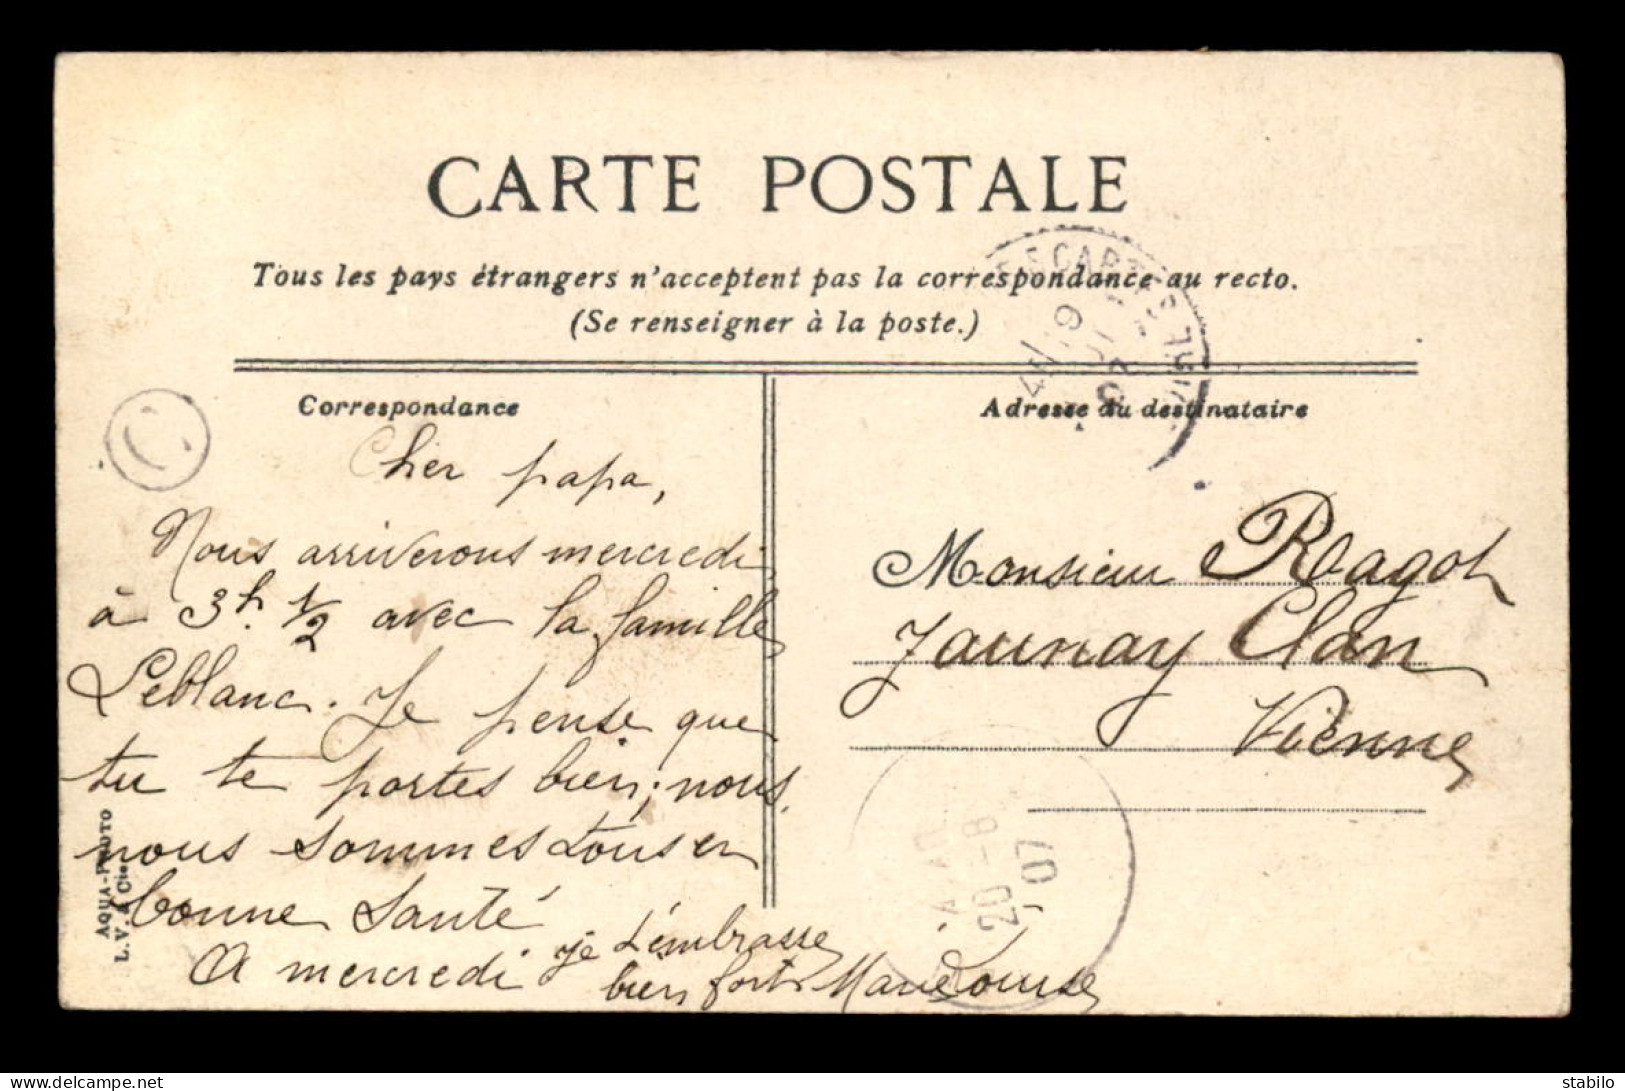 CARTE POSTALE
Tous les pays étrangers n'acceptent pas la correspondance au recto.
(Se renseigner à la poste.)
Correspondance
Cher papa,
Nous arriverons mercredi
à 3h. 1/2 avec la famille
Leblanc. Je pense que
tu te portes bien; nous
nous sommes tous en
bonne santé
A mercredi je t'embrasse
bien fort Marie Louise
Adresse du destinataire
Monsieur Ragot
Jaunay Clan
Vienne
AQUA-PHOTO
L. V. & Cie.
C
20 -8
07
delcampe.net
stabilo